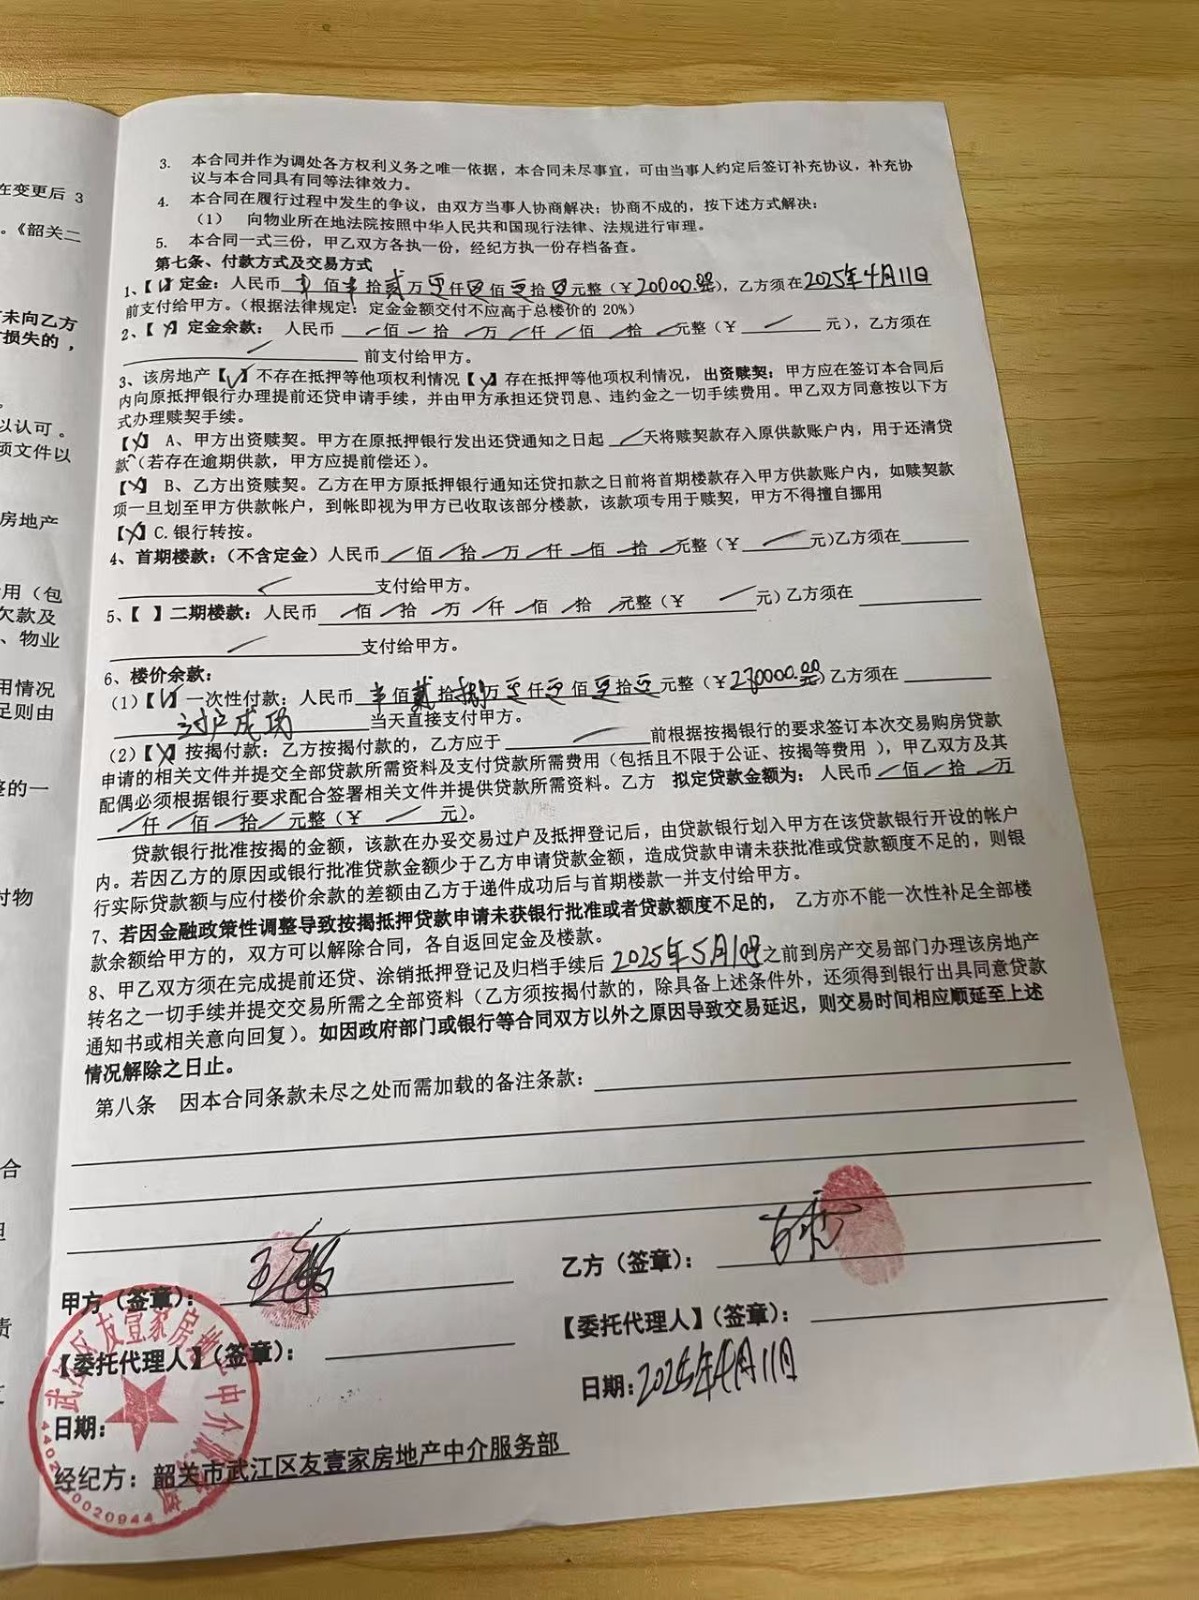 在变更后 3
。《韶关二
未向乙方
损失的，
以认可。
项文件以
房地产
用（包
欠款及
、物业
用情况
足则由
整的一
付物
合
责
3. 本合同并作为调处各方权利义务之唯一依据，本合同未尽事宜，可由当事人约定后签订补充协议，补充协
议与本合同具有同等法律效力。
4. 本合同在履行过程中发生的争议，由双方当事人协商解决；协商不成的，按下述方式解决：
（1） 向物业所在地法院按照中华人民共和国现行法律、法规进行审理。
5. 本合同一式三份，甲乙双方各执一份，经纪方执一份存档备查。
第七条、付款方式及交易方式
1、【√】定金：人民币 佰 拾贰万零仟零佰零拾零元整（￥20000.00），乙方须在2025年4月11日
前支付给甲方。（根据法律规定：定金金额交付不应高于总楼价的 20%）
2、【×】定金余款： 人民币 佰 拾 万 仟 佰 拾 元整（￥ 元），乙方须在
前支付给甲方。
3、该房地产【√】不存在抵押等他项权利情况【×】存在抵押等他项权利情况，出资赎契：甲方应在签订本合同后
内向原抵押银行办理提前还贷申请手续，并由甲方承担还贷罚息、违约金之一切手续费用。甲乙双方同意按以下方
式办理赎契手续。
【×】 A、甲方出资赎契。甲方在原抵押银行发出还贷通知之日起 天将赎契款存入原供款账户内，用于还清贷
款（若存在逾期供款，甲方应提前偿还）。
【×】 B、乙方出资赎契。乙方在甲方原抵押银行通知还贷扣款之日前将首期楼款存入甲方供款账户内，如赎契款
项一旦划至甲方供款帐户，到帐即视为甲方已收取该部分楼款，该款项专用于赎契，甲方不得擅自挪用
【×】C.银行转按。
4、首期楼款：（不含定金）人民币 佰 拾 万 仟 佰 拾 元整（￥ 元)乙方须在
支付给甲方。
5、【 】二期楼款：人民币 佰 拾 万 仟 佰 拾 元整（￥ 元）乙方须在
支付给甲方。
6、楼价余款：
（1）【√】一次性付款：人民币 佰贰拾 万零仟零佰零拾零元整（￥ 0000.00 乙方须在
过户成功 当天直接支付甲方。
（2）【×】按揭付款：乙方按揭付款的，乙方应于 前根据按揭银行的要求签订本次交易购房贷款
申请的相关文件并提交全部贷款所需资料及支付贷款所需费用（包括且不限于公证、按揭等费用 ），甲乙双方及其
配偶必须根据银行要求配合签署相关文件并提供贷款所需资料。乙方 拟定贷款金额为： 人民币 佰 拾 万
仟 佰 拾 元整（￥ 元）。
贷款银行批准按揭的金额，该款在办妥交易过户及抵押登记后，由贷款银行划入甲方在该贷款银行开设的帐户
内。若因乙方的原因或银行批准贷款金额少于乙方申请贷款金额，造成贷款申请未获批准或贷款额度不足的，则银
行实际贷款额与应付楼价余款的差额由乙方于递件成功后与首期楼款一并支付给甲方。
7、若因金融政策性调整导致按揭抵押贷款申请未获银行批准或者贷款额度不足的， 乙方亦不能一次性补足全部楼
款余额给甲方的，双方可以解除合同，各自返回定金及楼款。
8、甲乙双方须在完成提前还贷、涂销抵押登记及归档手续后 2025年5月10号之前到房产交易部门办理该房地产
转名之一切手续并提交交易所需之全部资料（乙方须按揭付款的，除具备上述条件外，还须得到银行出具同意贷款
通知书或相关意向回复）。如因政府部门或银行等合同双方以外之原因导致交易延迟，则交易时间相应顺延至上述
情况解除之日止。
第八条 因本合同条款未尽之处而需加载的备注条款：
甲方（签章）：
乙方（签章）：
【委托代理人】（签章）：
【委托代理人】（签章）：
日期：
日期：2025年4月11日
经纪方：韶关市武江区友壹家房地产中介服务部
武江区友壹家房地产中介服务部